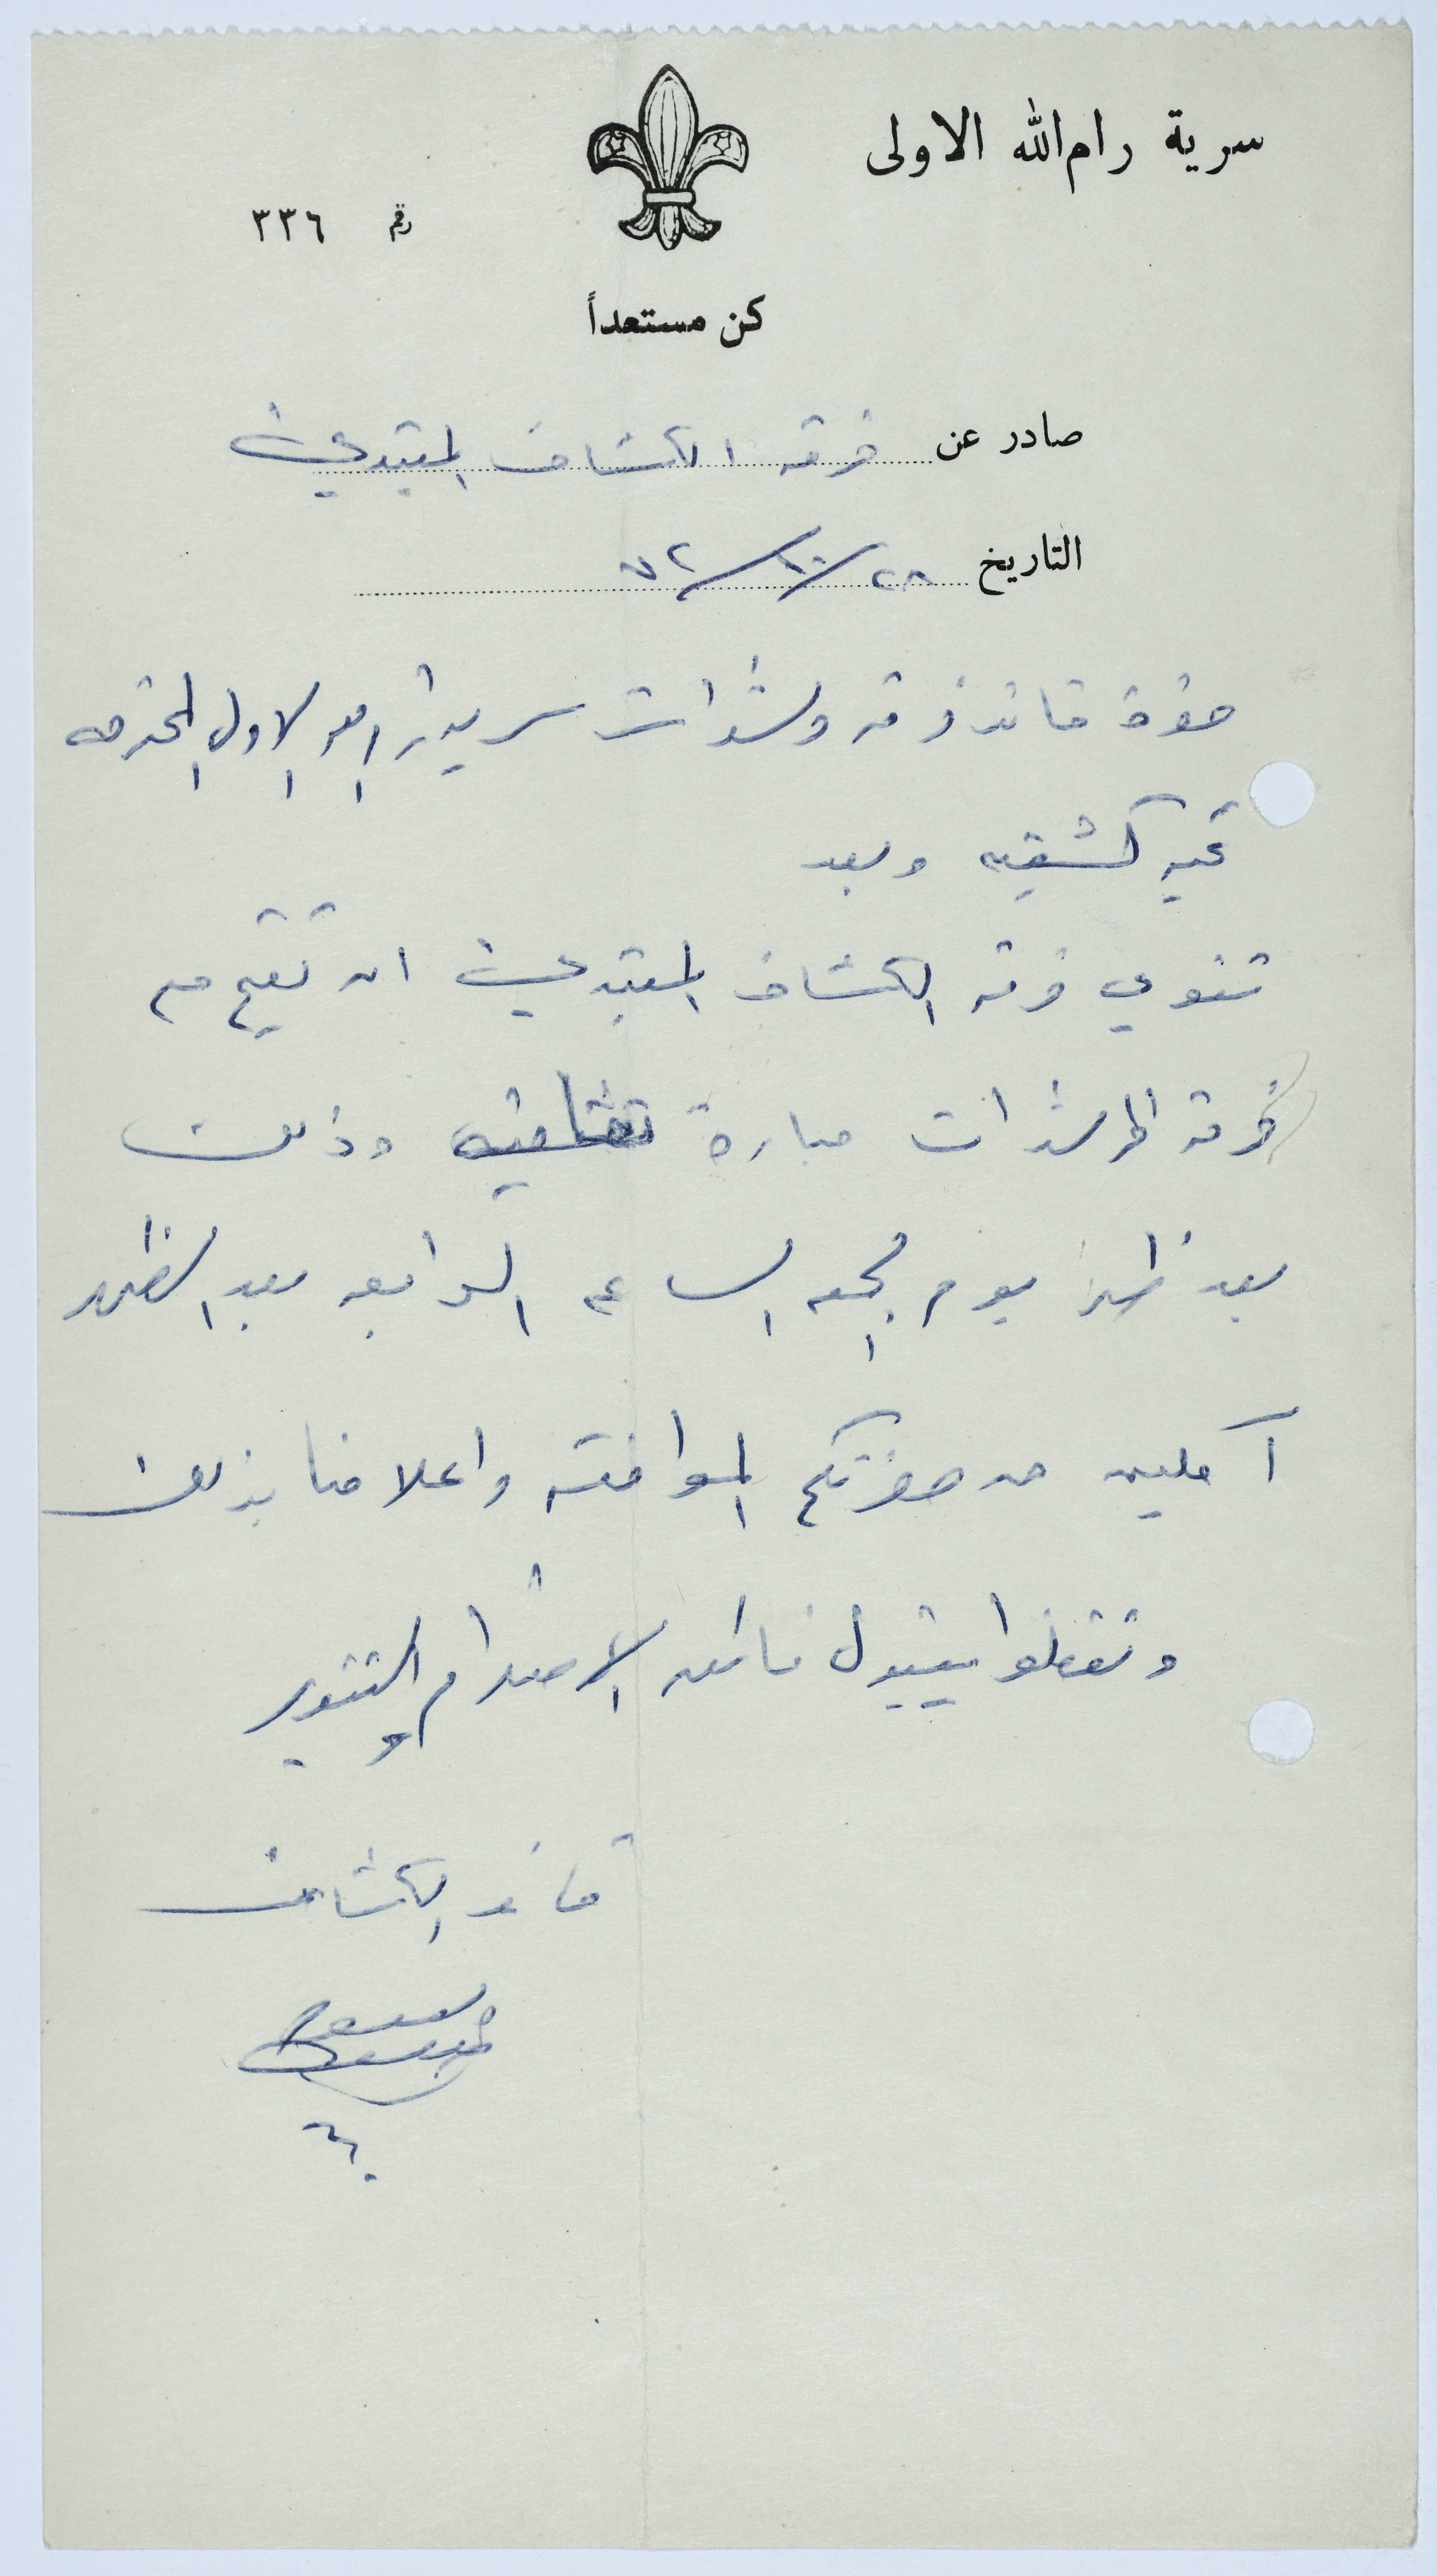 سرية رام الله الاولى
رقم ٣٣٦
كن مستعداً
صادر عن فرقة الكشاف المبتدئ
التاريخ ٢٨/١٠/٧٢
حضرة قائد فرقة مرشدات سرية رام الله الاولى المحترمه
تحيه كشفيه وبعد
تنوي فرقة الكشاف المبتدئ ان تقيم مع
فرقة المرشدات مباراة ثقافيه وذلك
بعد ظهر يوم الجمعه الساعه الرابعه بعد الظهر
آملين من حضرتكم الموافقه واعلامنا بذلك
وتفضلوا بقبول فائق الاحترام والتقدير
قائد الكشاف